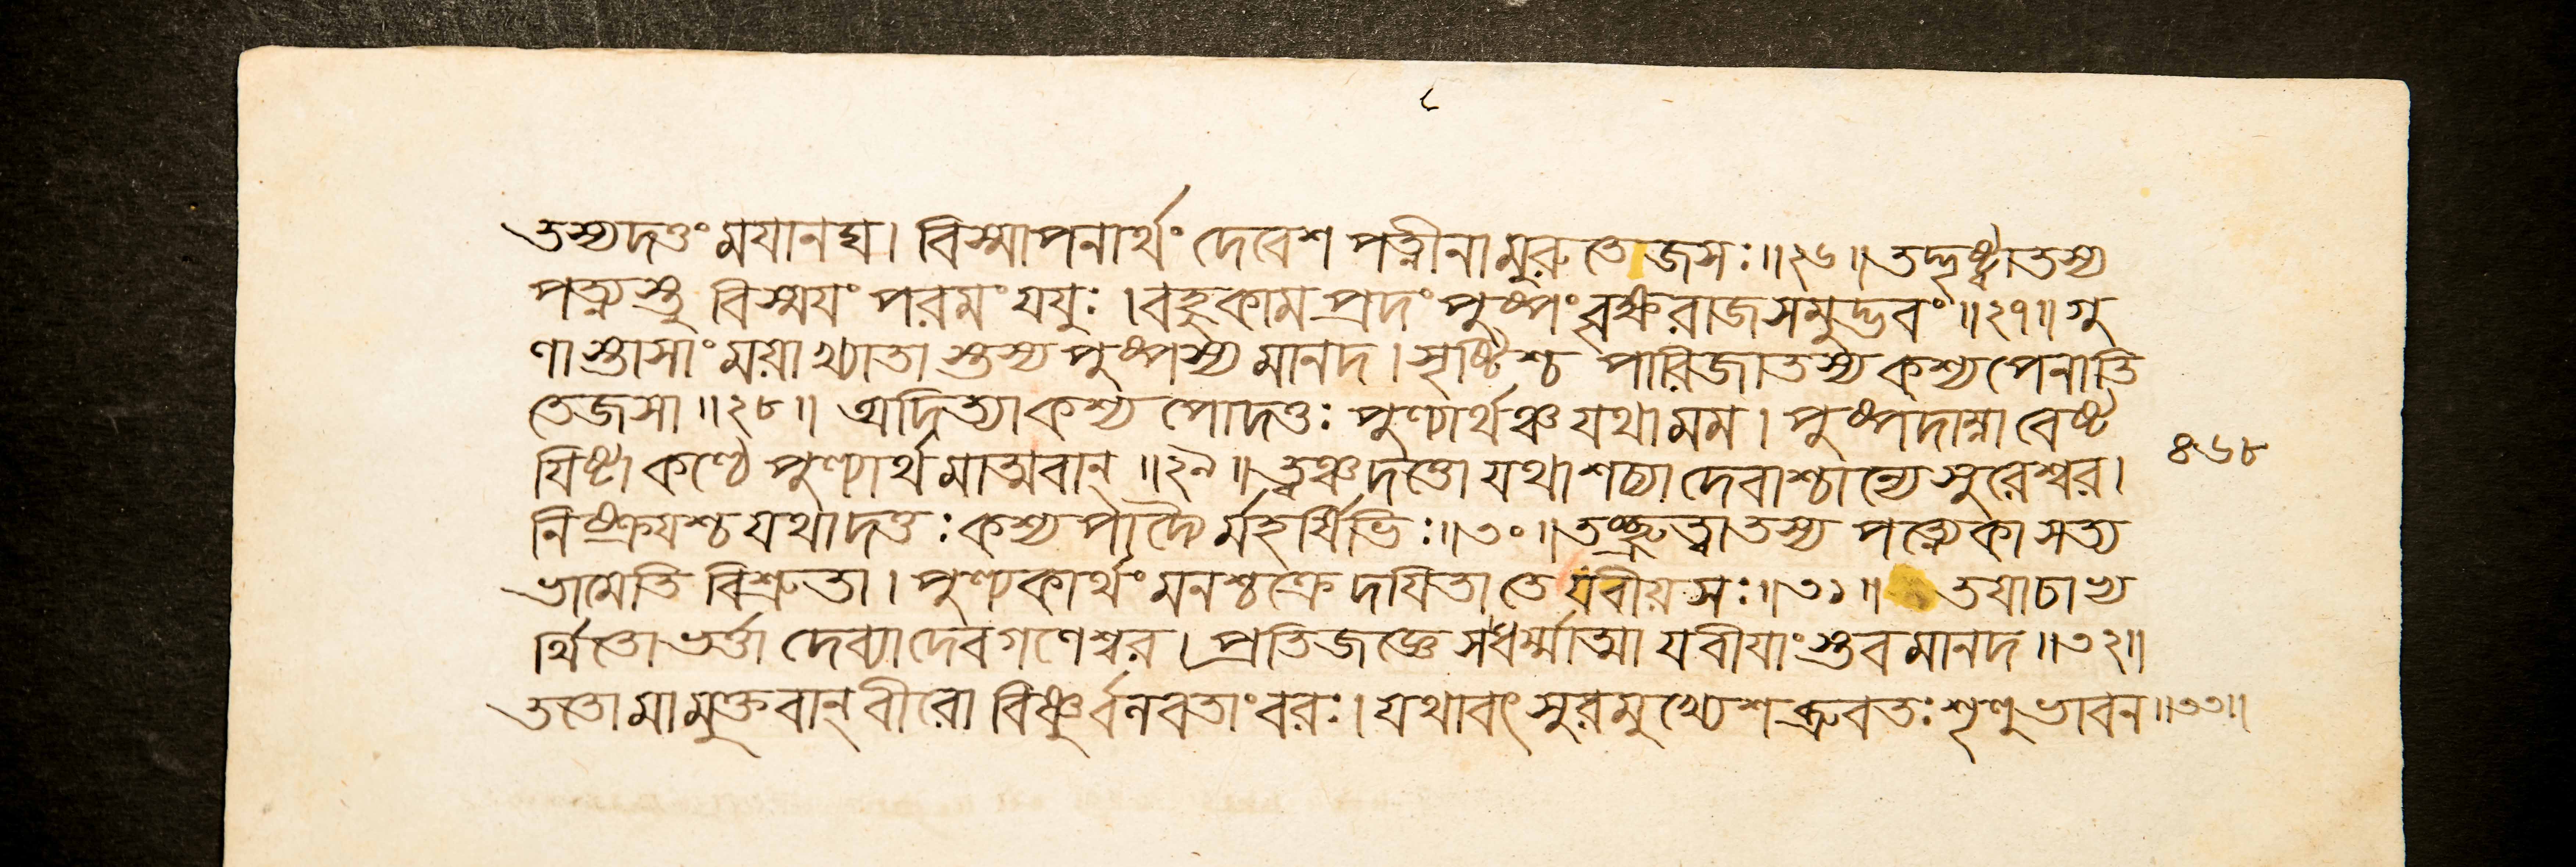 ৮
তস্য দত্তং ময়ানঘ। বিস্মাপনার্থং দেবেশ পত্নীনামুরুতেজসঃ॥২৬॥ তদ্দৃষ্ট্বা তস্য
পত্ন্যস্তু বিস্ময়ং পরমং যযুঃ। বহুকামপ্রদং পুষ্পং বৃক্ষরাজসমুদ্ভবং॥২৭॥ গু
ণাস্তাসাং ময়াখ্যাতাস্তস্য পুষ্পস্য মানদ। সৃষ্টিশ্চ পারিজাতস্য কশ্যপেনাতি
তেজসা॥২৮॥ অদিত্যা কশ্যপো দত্তঃ পুণ্যার্থঞ্চ যথা মম। পুষ্পদাম্না বেষ্ট
যিষ্টা কণ্ঠে পুণ্যার্থমাত্মবান্॥২৯॥ ত্বঞ্চ দত্তো যথা শচ্যা দেবাশ্চান্যে সুরেশ্বর।
নিষ্ক্রয়শ্চ যথা দত্তঃ কশ্যপাদ্যৈর্মহর্ষিভিঃ॥৩০॥ তচ্ছ্রুত্বা তস্য পত্ন্যেকা সত্য
ভামেতি বিশ্রুতা। পুণ্যকার্থং মনশ্চক্রে দয়িতা তে যবীয়সঃ॥৩১॥ তয়া চাভ্য
র্থিতো ভর্ত্তা দেব্যা দেবগণেশ্বর। প্রতিজজ্ঞে স ধর্ম্মাত্মা যবীয়াংস্তব মানদ॥৩২॥
ততো মামুক্তবান্ বীরো বিষ্ণুর্বনবতাং বরঃ। যথাবৎ সুরমুখ্যেশ ব্রুবতঃ শৃণু ভাবন॥৩৩॥
৪৬৮